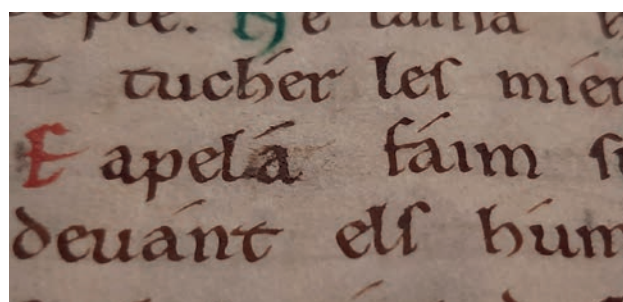 ⁊ tucher leſ mien
E apelá fáim ſu
deuánt elſ húm